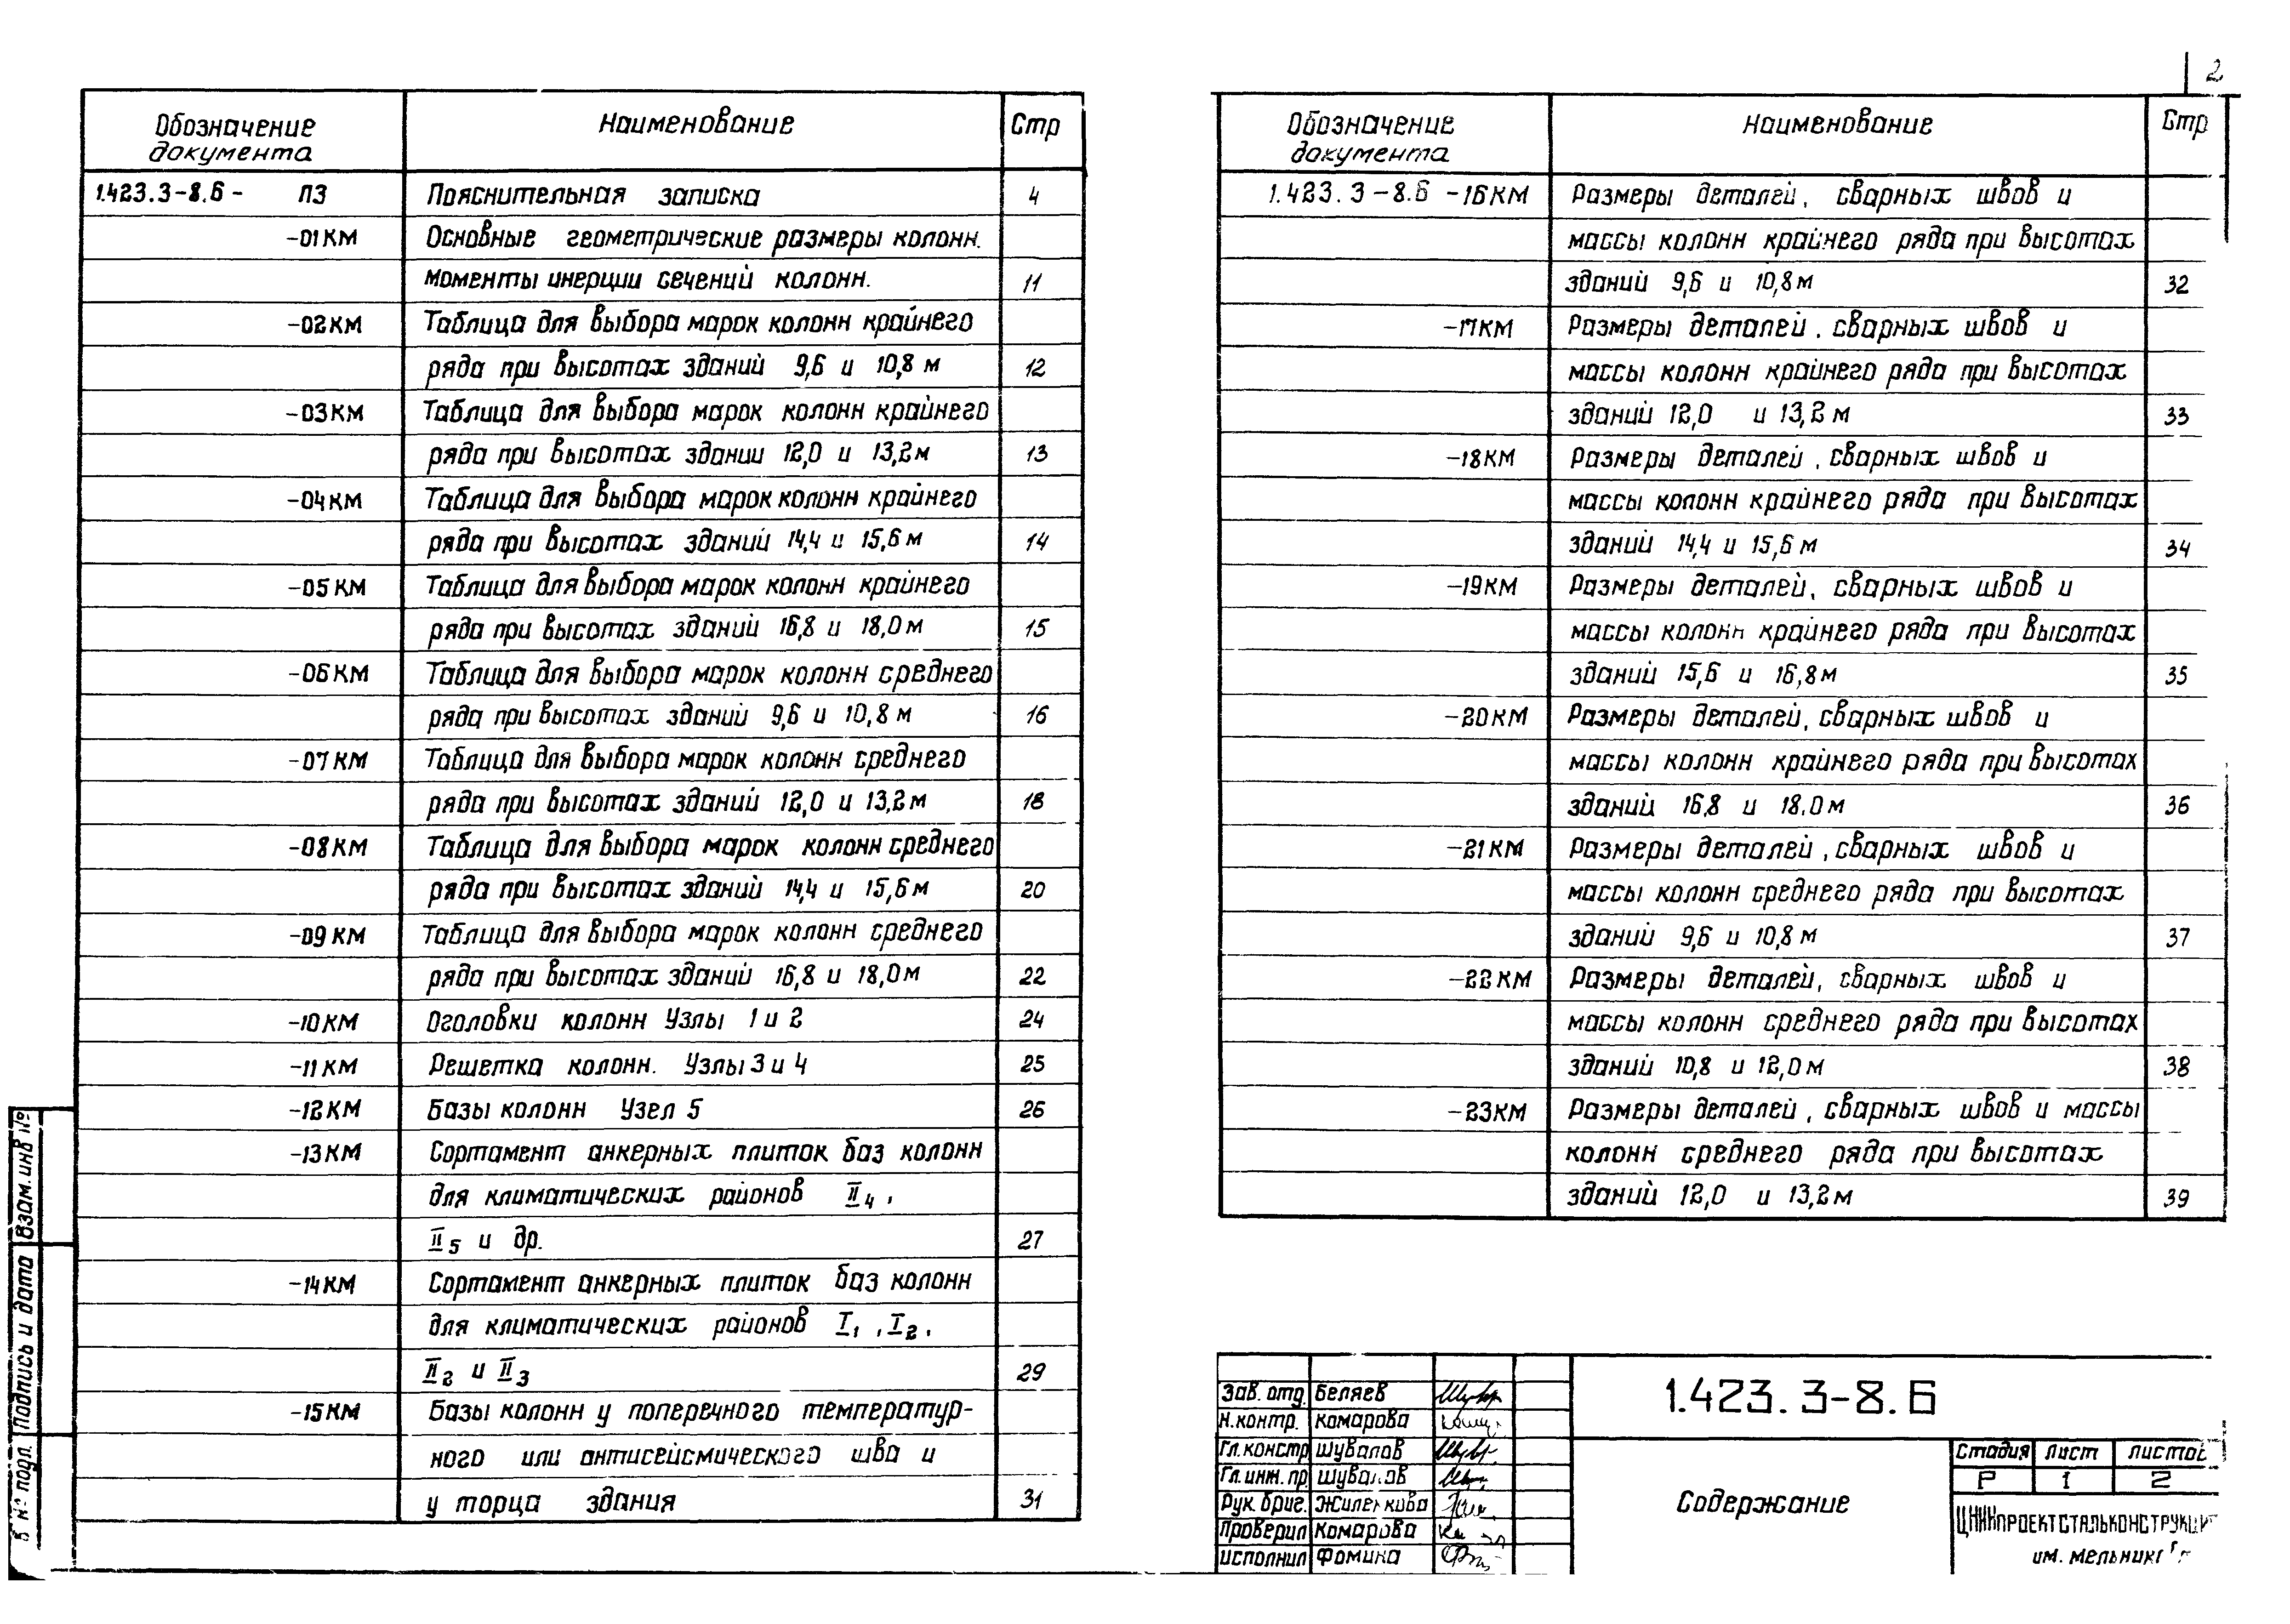 2
Обозначение документа Наименование Стр
1.423.3-8.6- ПЗ Пояснительная записка 4
-01КМ Основные геометрические размеры колонн.
Моменты инерции сечений колонн. 11
-02КМ Таблица для выбора марок колонн крайнего
ряда при высотах зданий 9,6 и 10,8 м 12
-03КМ Таблица для выбора марок колонн крайнего
ряда при высотах здании 12,0 и 13,2м 13
-04КМ Таблица для выбора марок колонн крайнего
ряда при высотах зданий 14,4 и 15,6м 14
-05КМ Таблица для выбора марок колонн крайнего
ряда при высотах зданий 16,8 и 18,0м 15
-06КМ Таблица для выбора марок колонн среднего
ряда при высотах зданий 9,6 и 10,8м 16
-07КМ Таблица для выбора марок колонн среднего
ряда при высотах зданий 12,0 и 13,2м 18
-08КМ Таблица для выбора марок колонн среднего
ряда при высотах зданий 14,4 и 15,6м 20
-09КМ Таблица для выбора марок колонн среднего
ряда при высотах зданий 16,8 и 18,0м 22
-10КМ Оголовки колонн Узлы 1 и 2 24
-11КМ Решетка колонн. Узлы 3 и 4 25
-12КМ Базы колонн Узел 5 26
-13КМ Сортамент анкерных плиток баз колонн
для климатических районов II4,
II5 и др. 27
-14КМ Сортамент анкерных плиток баз колонн
для климатических районов I1, I2,
II2 и II3 29
-15КМ Базы колонн у поперечного температур-
ного или антисейсмического шва и
у торца здания 31
Обозначение документа Наименование Стр
1.423.3-8.6 -16КМ Размеры деталей, сварных швов и
массы колонн крайнего ряда при высотах
зданий 9,6 и 10,8м 32
-17КМ Размеры деталей, сварных швов и
массы колонн крайнего ряда при высотах
зданий 12,0 и 13,2м 33
-18КМ Размеры деталей, сварных швов и
массы колонн крайнего ряда при высотах
зданий 14,4 и 15,6м 34
-19КМ Размеры деталей, сварных швов и
массы колонн крайнего ряда при высотах
зданий 15,6 и 16,8м 35
-20КМ Размеры деталей, сварных швов и
массы колонн крайнего ряда при высотах
зданий 16,8 и 18,0м 36
-21КМ Размеры деталей, сварных швов и
массы колонн среднего ряда при высотах
зданий 9,6 и 10,8м 37
-22КМ Размеры деталей, сварных швов и
массы колонн среднего ряда при высотах
зданий 10,8 и 12,0м 38
-23КМ Размеры деталей, сварных швов и массы
колонн среднего ряда при высотах
зданий 12,0 и 13,2м 39
Взам. инв №
Подпись и дата
№ подл.
Зав. отд. Беляев
Н.контр. Комарова
Гл.констр Шувалов
Гл.инж.пр. Шувалов
Рук.бриг. Жиленкова
Проверил Комарова
исполнил Фомина
1.423.3-8.6
Содержание
Стадия Лист Листов
Р 1 2
ЦНИИпроектстальконструкци
им. Мельник